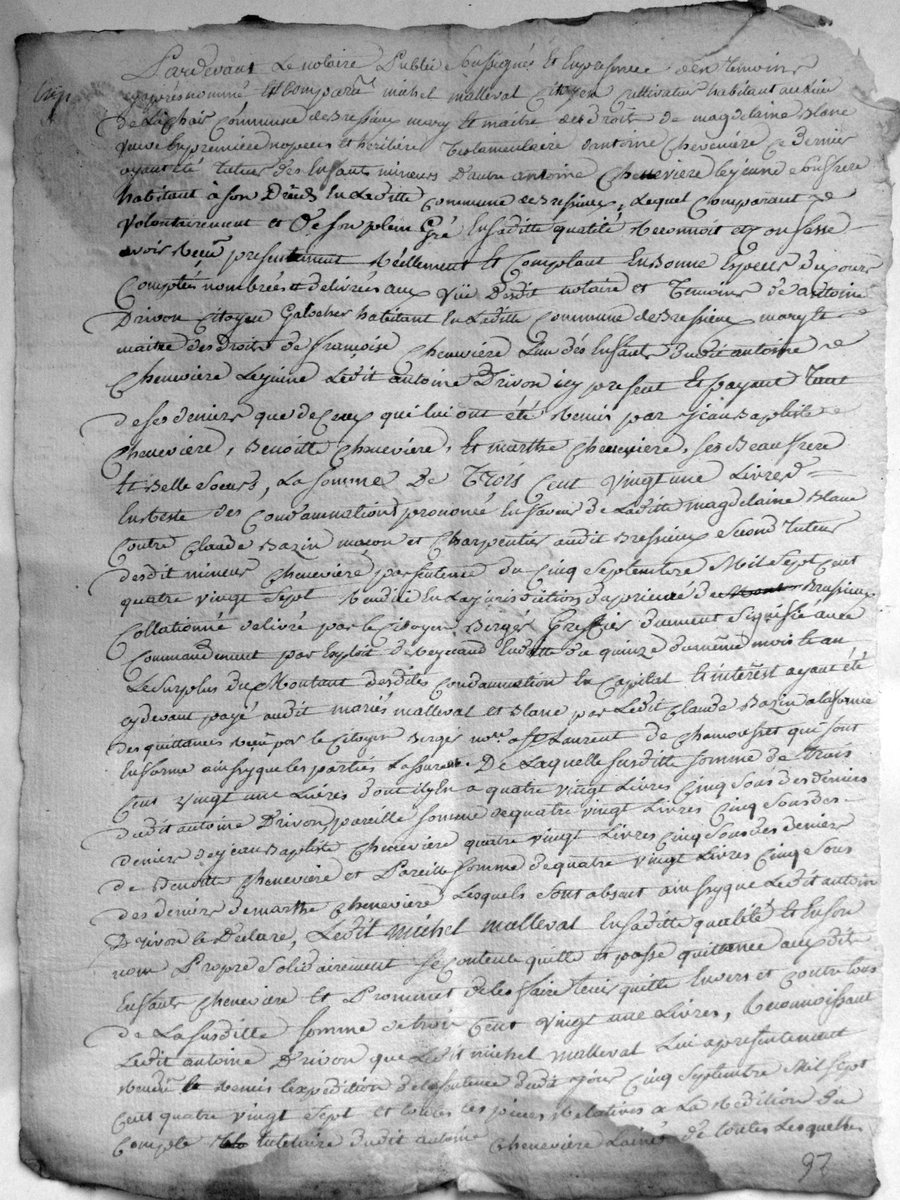 Pardevant Le notaire Public Soussigné et En presence des Temoins
Exp.
cy apres nommé Est Comparu michel malleval Citoyen Cultivateur habitant au lieu
de Commune de Bressieux mary et maitre des Droits de magdelaine Blanc
veuve En premiere nopces et heritiere Testamentaire d'antoine Chenevière Ce dernier
ayant été tuteur des Enfants mineurs d'autre antoine Chenevière le jeune Son frere
habitant à Son Décés En Laditte Commune de Bressieux, Lequel Comparant de
volontairement et De son plein Gré En saditte qualité Reconnoit et Confesse
avoir Reçu presentement Réellement et Comptant En Bonne Especes du Cours
Comptés nombrées et delivrées aux vüe Dudit notaire et Temoins d'antoine
Drivon Citoyen Galocher habitant En Laditte Commune de Bressieux mary et
maitre des Droits de françoise Chenevière L'un des Enfants Dudit antoine
Chenevière Lejeune Ledit antoine Drivon icy present Et payant Tant
de ses deniers que de Ceux qui lui ont été Remis par jean Baptiste
Chenevière, Benoitte Chenevière, Et marthe Chenevière, ses Beau frere
Et Belle Soeurs, La somme De Trois Cent vingt une Livres
En Reste des Condamnations prononcée En faveur de Laditte magdelaine Blanc
Contre Claude Bazin maçon et Charpentier audit Bressieux Second Tuteur
desdit mineur Chenevière par sentence du Cinq Septembre Mil Sept Cent
quatre vingt Sept Rendüe En La jurisdiction du prieuré de Bressieux
Collationné délivré par le Citoyen Bergés Greffier düement Signifié avec
Commandement par Exploit de Reynaud En datte du quinze du même mois et an
Le Surplus du Montant desdites Condamnation En Capital et interest ayant été
cy devant payé audit mariés malleval et Blanc par Ledit Claude Bazin a la forme
des quittances Reçu par le Citoyen Berger nore. a St Laurent de qui sont
En forme ainsy que les parties L'assurent De Laquelle Susditte somme de Trois
Cent vingt une Livres dont il y En a quatre vingt Livres Cinq Sous des deniers
dudit antoine Drivon pareille somme de quatre vingt Livres Cinq Sous des
deniers de jean Baptiste Chenevière quatre vingt Livres Cinq Sous des deniers
de Benoitte Chenevière et Pareille somme de quatre vingt Livres Cinq Sous
des deniers de marthe Chenevière Lesquels sont absent ainsy que Ledit antoine
Drivon le Déclare, Ledit michel malleval En saditte qualité Et En son
nom Propre Solidairement Se Contente quitte et passe quittance auxdits
Enfants Chenevière Et Promet de les faire tenir quitte Envers et Contre tous
de La susditte somme de trois Cent vingt une Livres, Reconnoissant
Ledit antoine Drivon que Ledit michel malleval Lui a presentement
Rendu et Remis L'expedition de la sentence dudit jour Cinq Septembre Mil Sept
Cent quatre vingt Sept et toutes les pieces Relatives a La Reddition du
Compte tutelaire dudit antoine Chenevière L'ainé De toutes Lesquelles
97